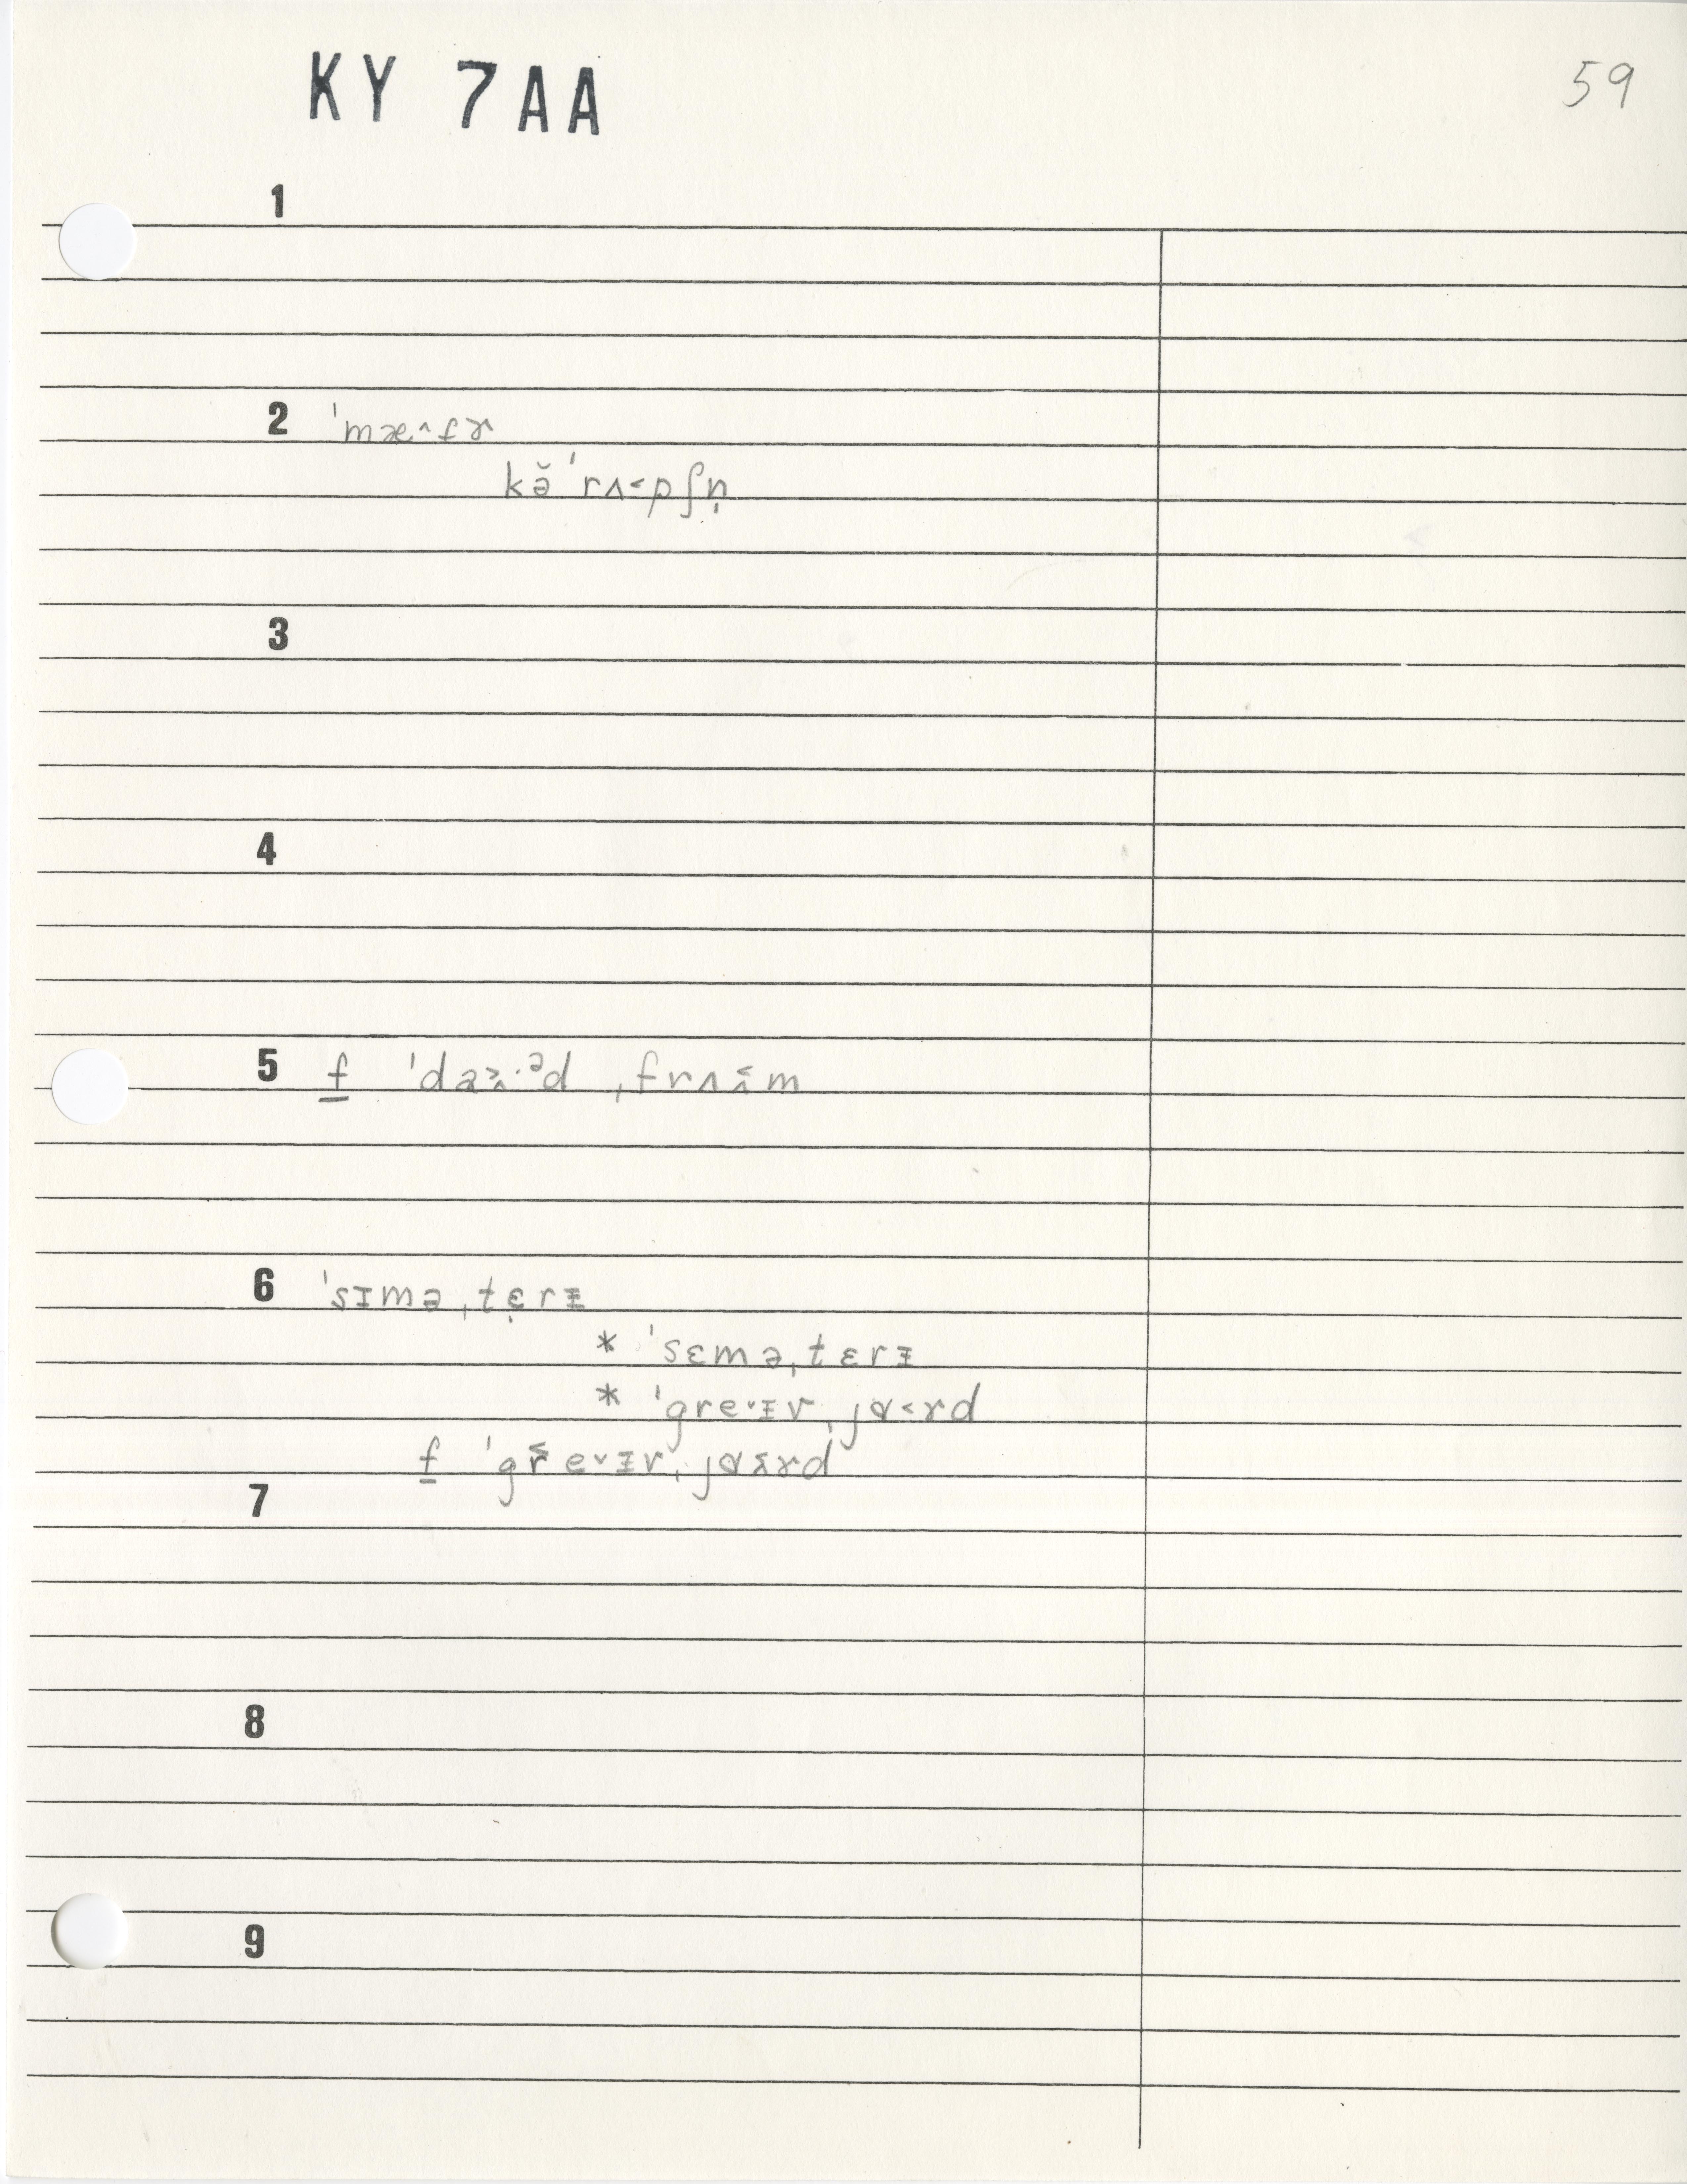 KY 7AA
59
1
2 ˈmæ˄fɚ
kə̆ˈrʌ˂pʃn̩
3
4
5 f̲ ˈdaɪ·ᵊd ˌfrʌm
6 ˈsɪməˌtɛ̣rɪ̵
* ˈsɛməˌtɛrɪ̵
* ˈgre˅ɪ̵vˌjɑ˂ɚd
f̲ ˈgre˅ɪ̵vˌjɑɚd
7
8
9